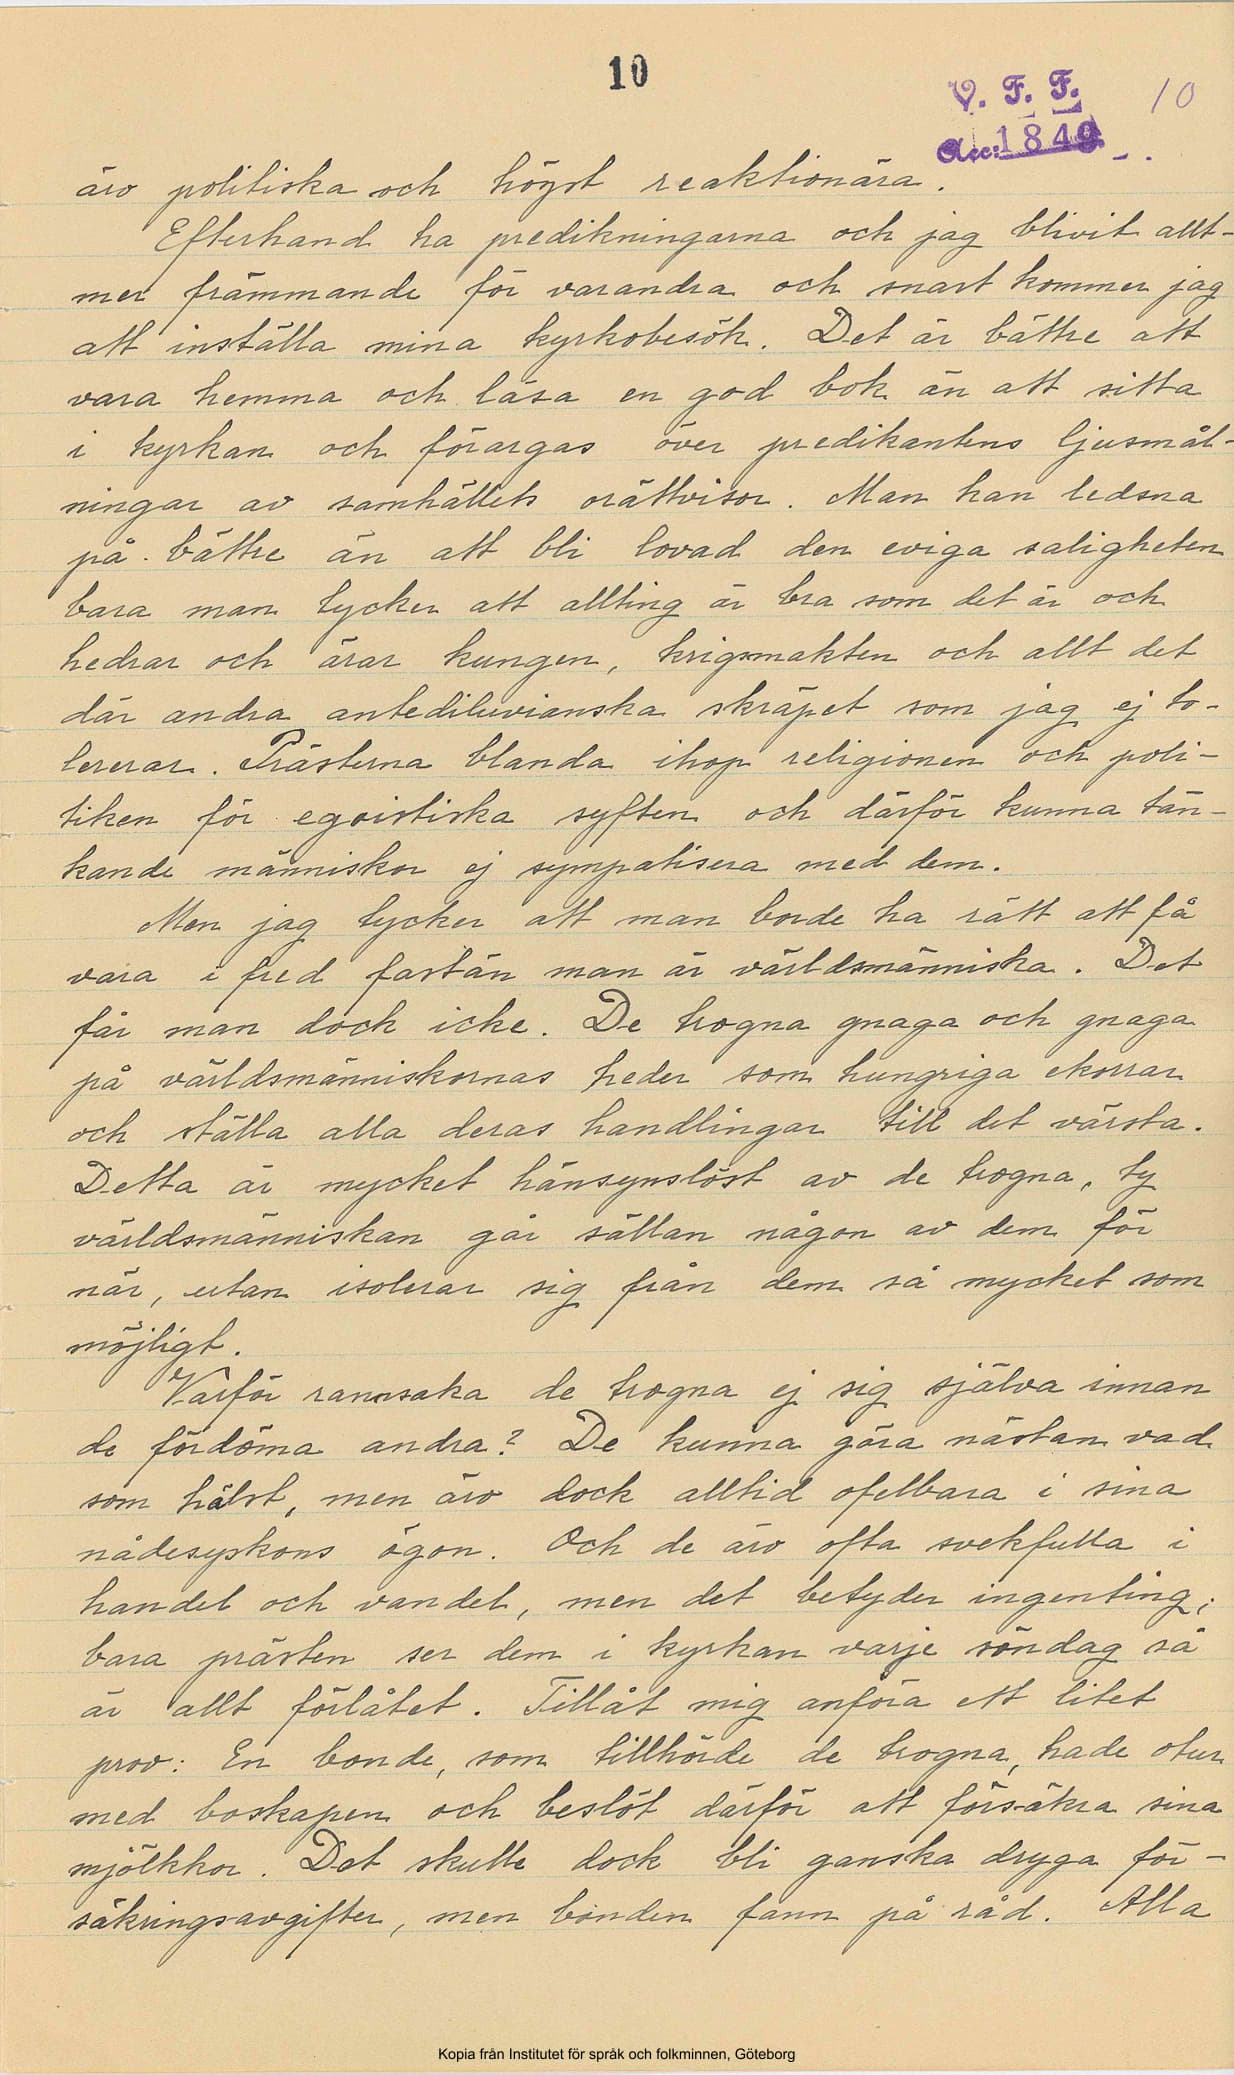 10
V. F. F.
10
Acc: 1849
äro politiska och högst reaktionära.
Efterhand ha predikningarna och jag blivit allt-
mer främmande för varandra och snart kommer jag
att inställa mina kyrkobesök. Det är bättre att
vara hemma och läsa en god bok än att sitta
i kyrkan och förargas över predikantens ljusmål-
ningar av samhällets orättvisor. Man kan ledsna
på bättre än att bli lovad den eviga saligheten
bara man tycker att allting är bra som det är och
hedrar och ärar kungen, krigsmakten och allt det
där andra antediluvianska skräpet som jag ej to-
lererar. Prästerna blanda ihop religionen och poli-
tiken för egoistiska syften och därför kunna tän-
kande människor ej sympatisera med dem.
Men jag tycker att man borde ha rätt att få
vara i fred fastän man är världsmänniska. Det
får man dock icke. De trogna gnaga och gnaga
på världsmänniskornas heder som hungriga ekorrar
och ställa alla deras handlingar till det värsta.
Detta är mycket hänsynslöst av de trogna, ty
världsmänniskan går sällan någon av dem för
när, utan isolerar sig från dem så mycket som
möjligt.
Varför rannsaka de trogna ej sig själva innan
de fördöma andra? De kunna göra nästan vad
som hälst, men äro dock alltid ofelbara i sina
nådesyskons ögon. Och de äro ofta svekfulla i
handel och vandel, men det betyder ingenting;
bara prästen ser dem i kyrkan varje söndag så
är allt förlåtet. Tillåt mig anföra ett litet
prov: En bonde, som tillhörde de trogna, hade otur
med boskapen och beslöt därför att försäkra sina
mjölkkor. Det skulle dock bli ganska dryga för-
säkringsavgifter, men bonden fann på råd. Alla
Kopia från Institutet för språk och folkminnen, Göteborg